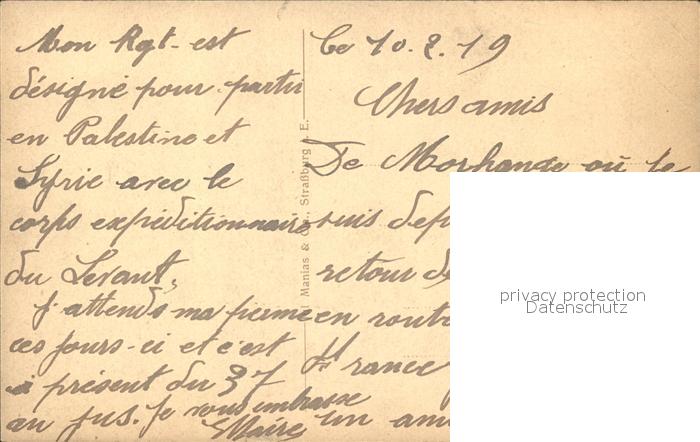 Mon Rgt - est
désigné pour partir
en Palestine et
Syrie avec le
corps expéditionnaire
du Levant,
j'attends ma
ces jours-ci et c'est
à présent du 37
au jus. Je vous embrasse
Le 10.2.19
Chers amis
De Morhange où je
suis
retour de
en route
France
un ami
Manias & Straßburg i. E.
privacy protection
Datenschutz